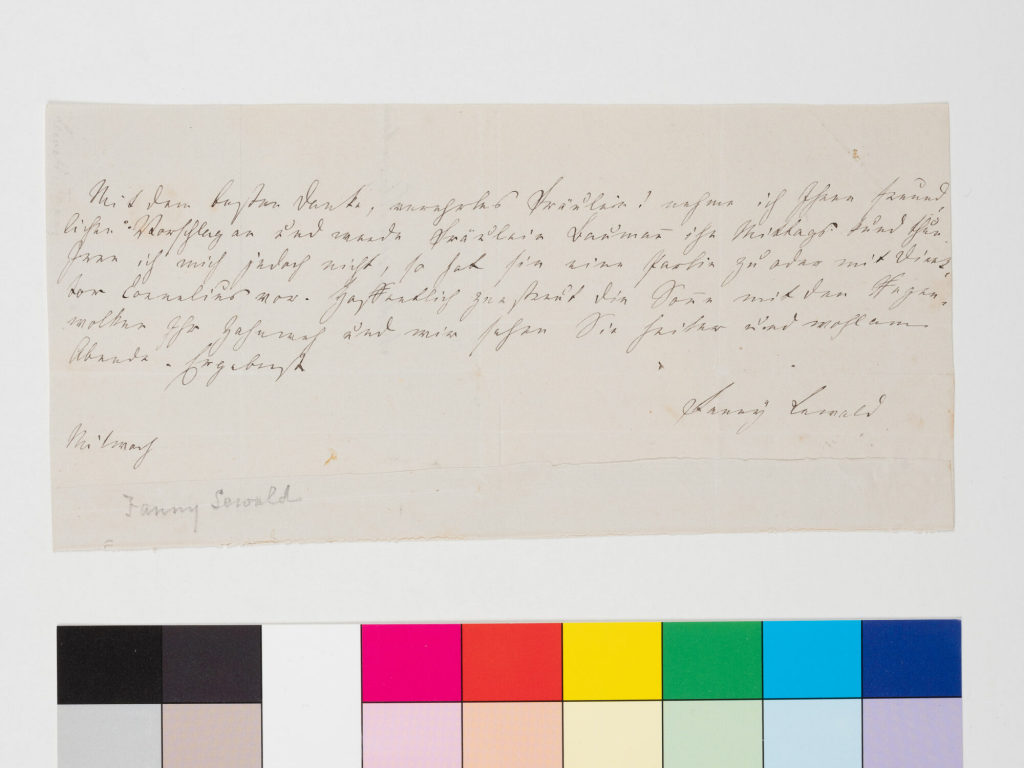 Mit dem besten Danke, verehrtes Fräulein! nehme ich Ihren freund
lichen Vorschlag an und werde Fräulein Baumann ihn Mittags kund thun.
Irre ich mich jedoch nicht, so hat sie eine Partie zu oder mit Direk-
tor Cornelius vor. Hoffentlich zerstreut die Sonne mit den Regen-
wolken Ihr Zahnweh und wir sehen Sie heiter und wohl am
Abende. Ergebenst
Fanny Lewald
Mitwoch
Fanny Lewald